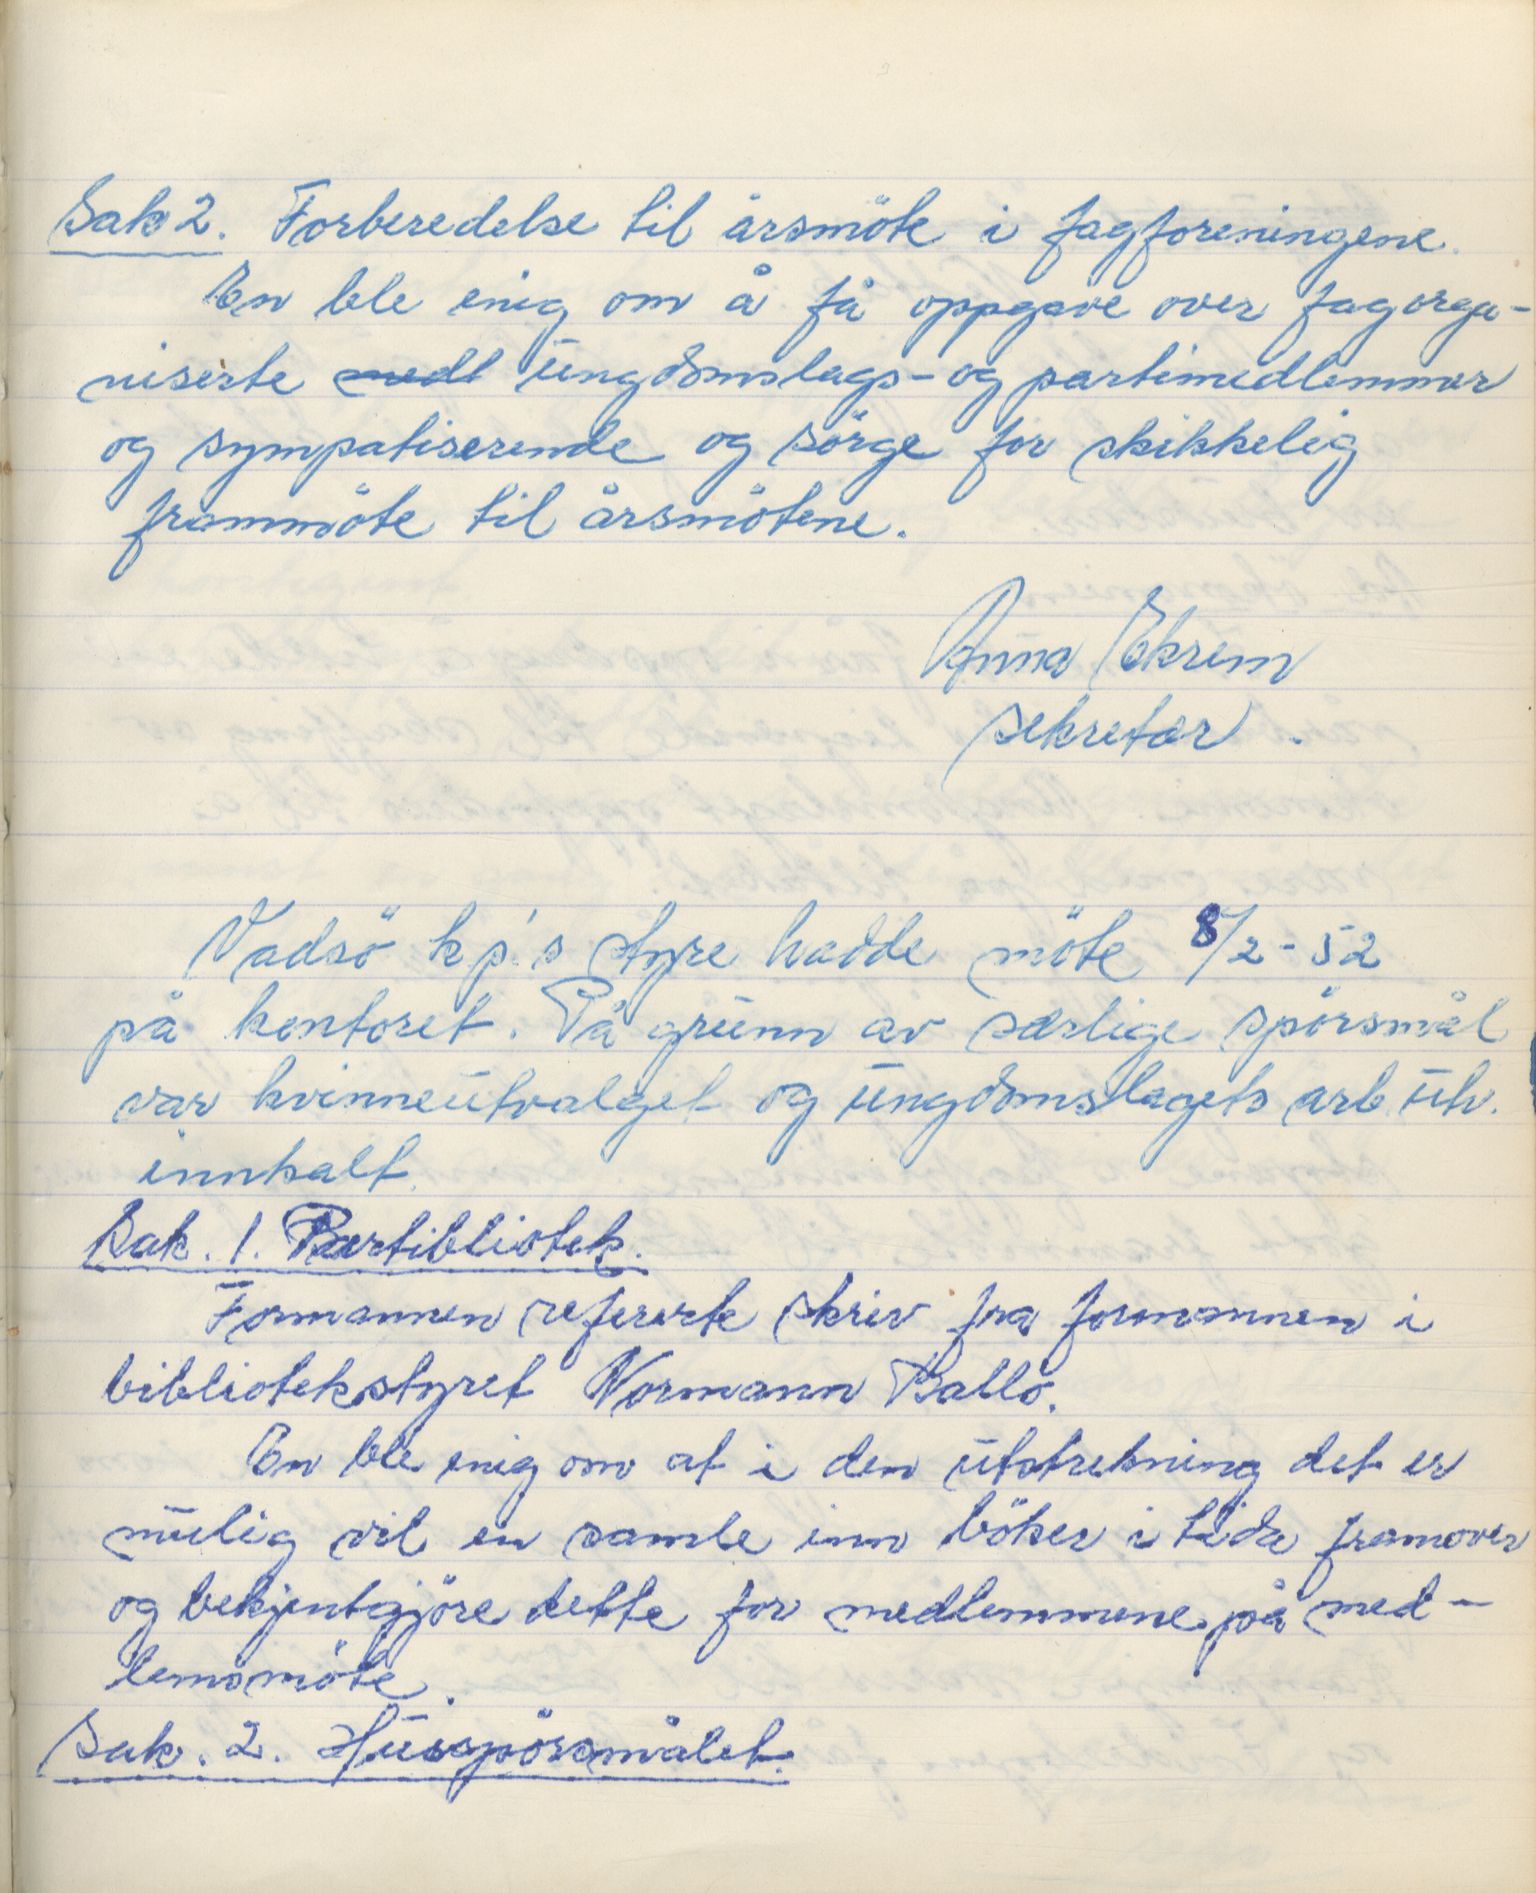 Sak 2. Forberedelse til årsmöte i fagforeningene.
En ble enig om å få oppgave over fagorga-
niserte medl ungdomslags- og partimedlemmer
og sympatiserende og sörge for skikkelig
frammöte til årsmötene.
Anna Ekrem
sekretær.
Vadsö k p.'s styre hadde möte 8/2-52
på kontoret. På grunn av særlige spörsmål
var kvinneutvalget og ungdomslagets arb utv.
innkalt.
Sak. 1. Partibibliotek.
Formannen refererte skriv fra formannen i
bibliotekstyret Normann Ballo.
En ble enig om at i den utstrekning det er
mulig vil en samle inn böker i tida framover
og bekjentgjöre dette for medlemmene på med-
lemsmöte.
Sak. 2. Husspörsmålet.